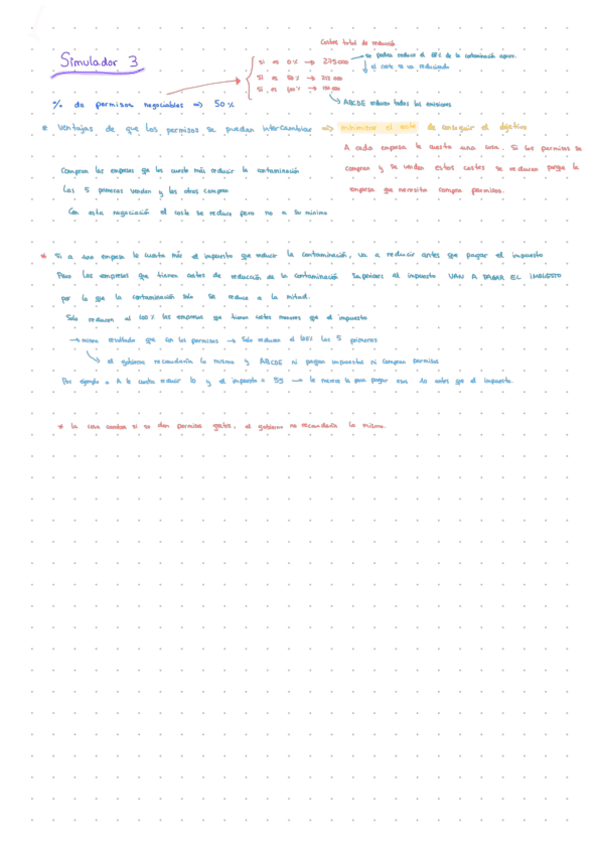 Costes total de reducción
Simulador 3
si es 0% → 275000 → se podría reducir el
si es 50% → 212000
↓ el coste se va reduciendo
si es 100% → 150000
% de permisos negociables ⇒ 50%
ABCDE reducen todas las emisiones
* Ventajas de que los permisos se puedan intercambiar ⇒ minimizar el coste de conseguir el objetivo
A cada empresa le cuesta una cosa. Si los permisos se
compran y se venden estos costes se reducen porque la
empresa que necesita compra permisos.
Compran las empresas que les cueste más reducir la contaminación
Las 5 primeras venden y las otras compran
Con esta negociación el coste se reduce pero no a su mínimo
* Si a una empresa le cuesta más el impuesto que reducir la contaminación, va a reducir antes que pagar el impuesto
Pero las empresas que tienen costes de reducción de la contaminación superiores al impuesto VAN A PAGAR EL IMPUESTO
por lo que la contaminación solo se reduce a la mitad.
Solo reducen al 100% las empresas que tienen costes menores que el impuesto
→ mismo resultado que con los permisos → Solo reducen al 100% las 5 primeras
→ el gobierno recaudaría lo mismo y ABCDE ni pagan impuestos ni compran permisos
Por ejemplo a A le cuesta reducir 10 y el impuesto = 55 → le merece la pena pagar esos 10 antes que el impuesto.
* la cosa cambia si se dan permisos gratis, el gobierno no recaudaría lo mismo.